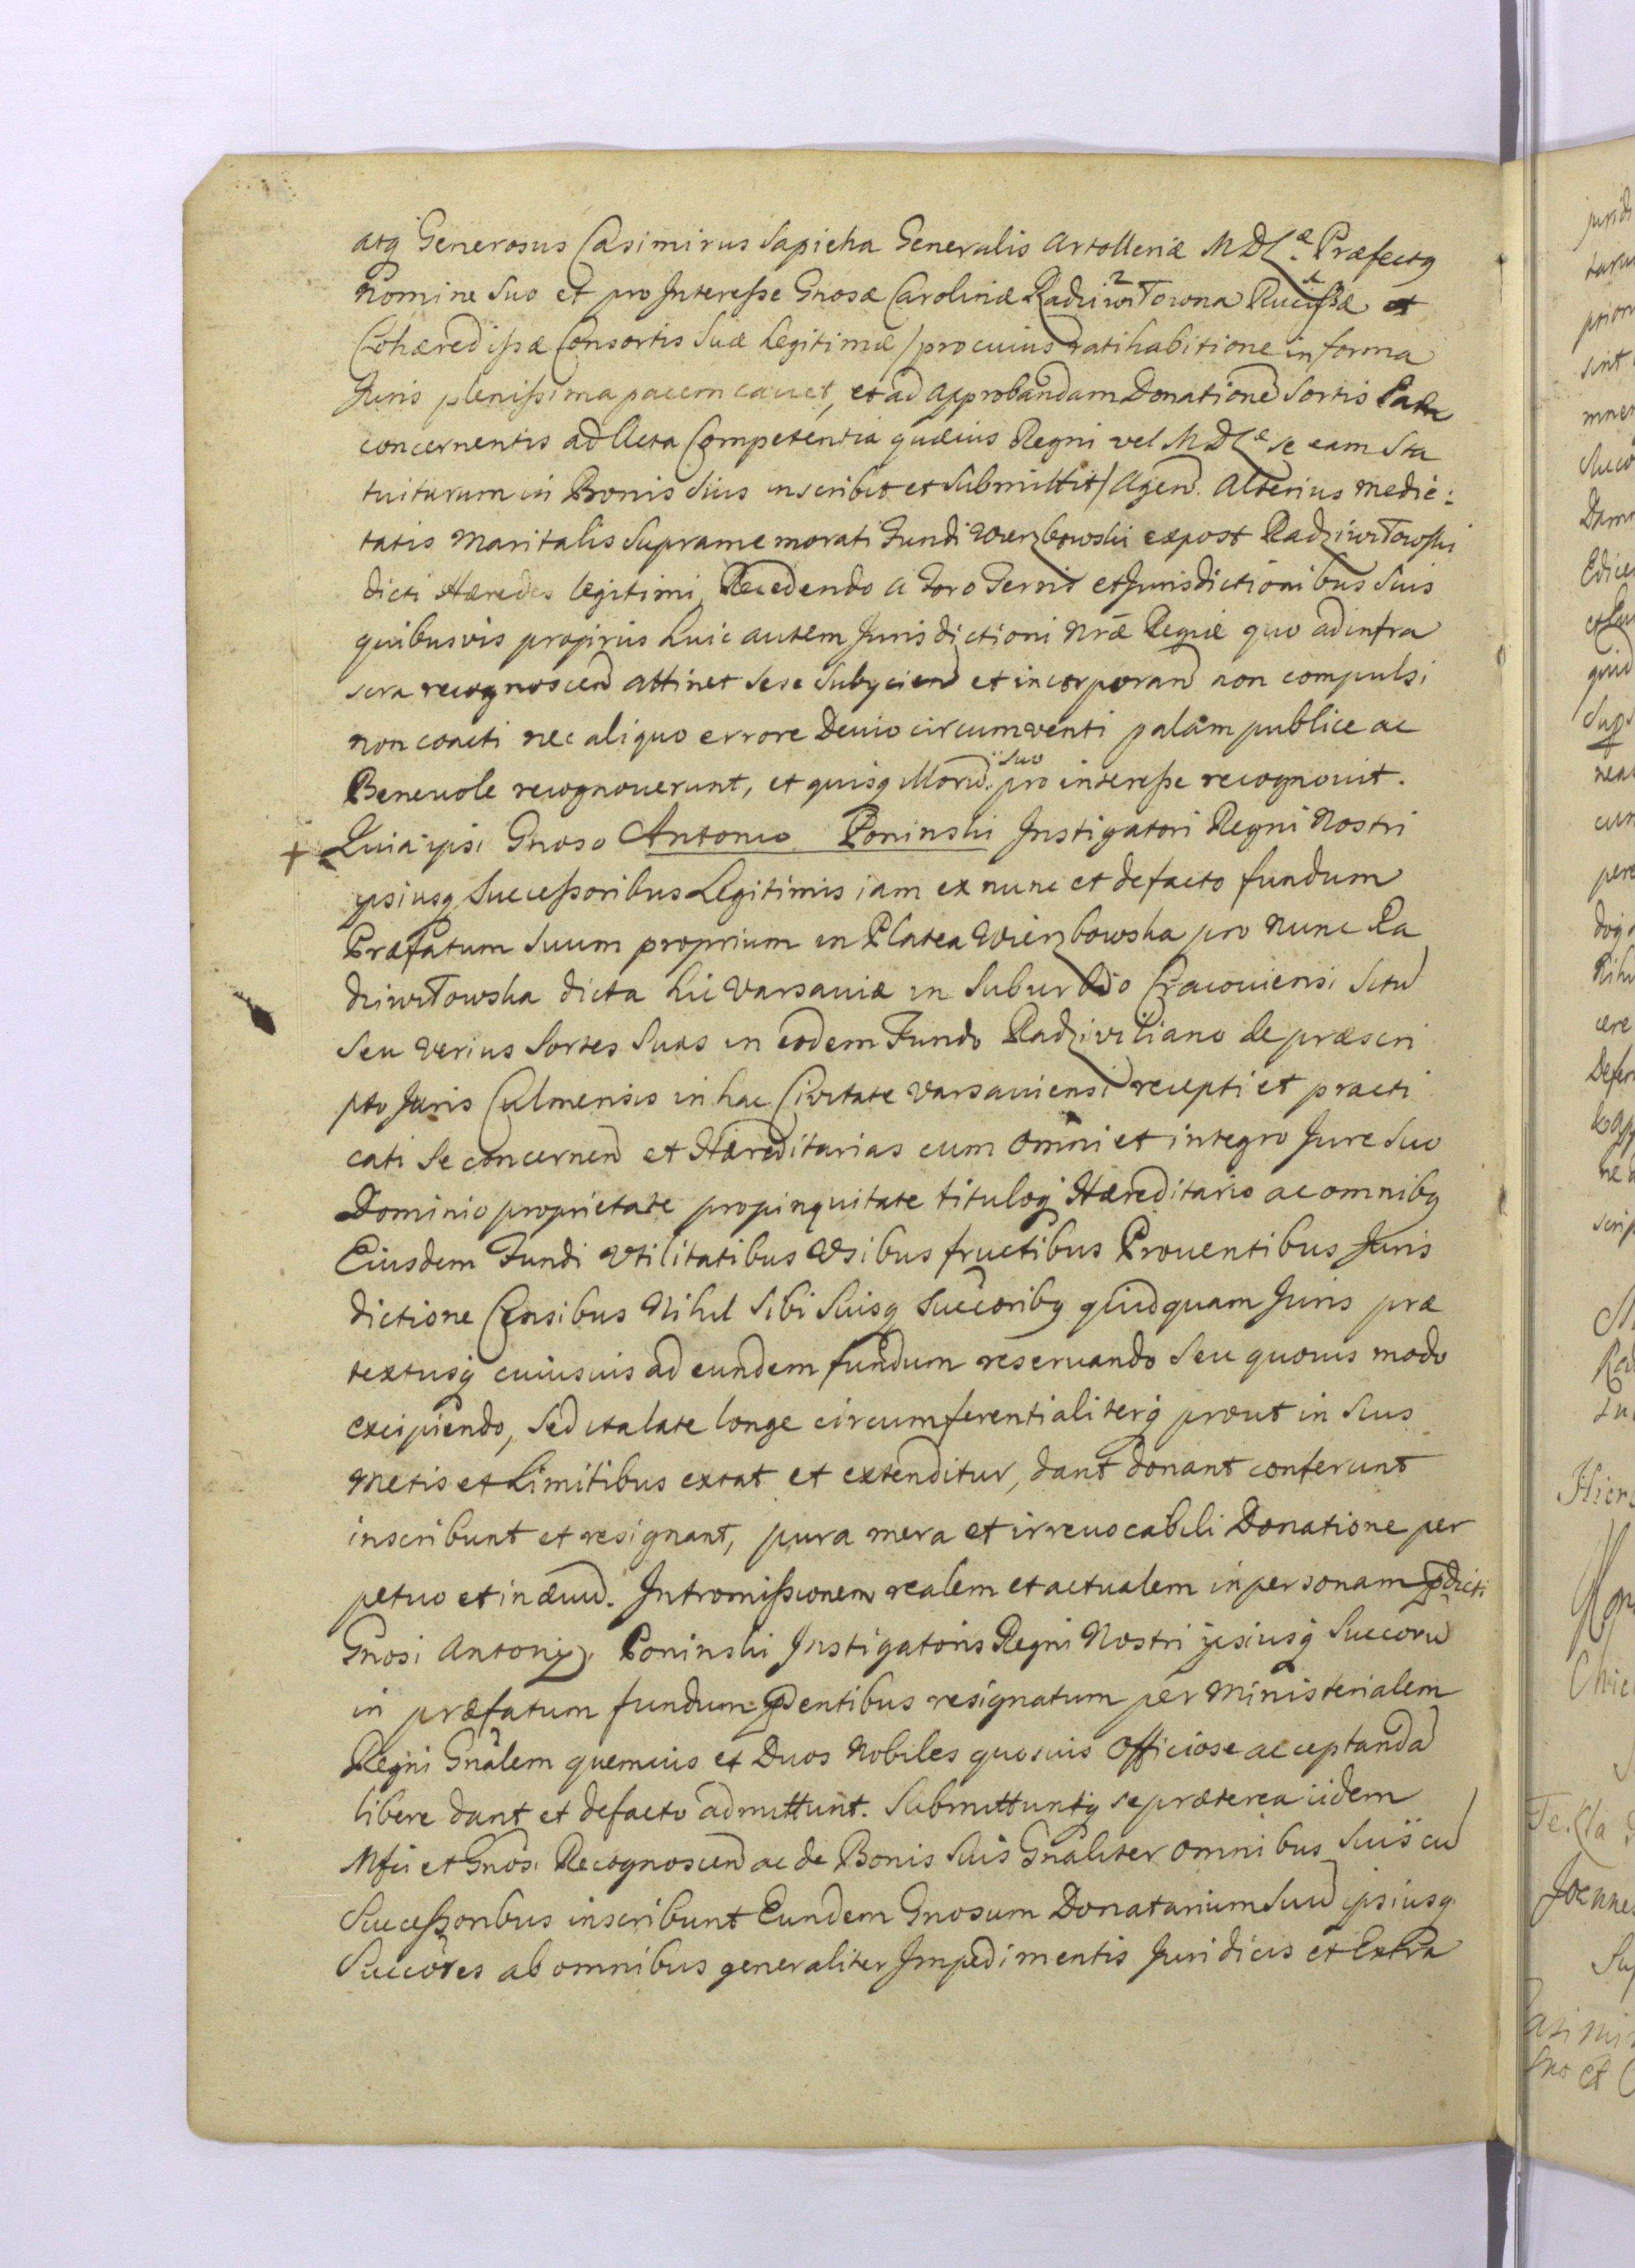 atq Generosus Casimirus Sapieha Generalis Artolleriæ MDLæ. Præfectq
Nomine Suo et pro Interesse Gnosæ Carolinæ Radziwiłłowna Ducissæ et
Cohæredissæ Consortis Suæ Legitimæ / pro cuius ratihabitione in forma
Juris plenissima pacem cavet, et ad approbandam Donatione Sortis
concernentis ad Acta Competentia quævis Regni vel MDLæ se eam Sta
tuituram in Bonis Suis inscribit et Submittit / Agen. Alterius Medie:
tatis Maritalis Supramemorati Fundi Wierzbowski expost Radziwiłłowski
dicti Hæredes legitimi, Recedendo a Foro Terris et Jurisdictionibus Suis
quibusvis propriis huic autem Jurisdictioni Nræ Regiæ quo ad infra
scra recognoscen attinet sese Subyicien et incorporan non compulsi
non coacti nec aliquo errore Devio circumventi palam publice ac
Benevole recognoverunt, et quisq Illorū. pro Suo interesse recognovit.
+ Quia ipsi Gnoso Antonio Poninski Instigatori Regni Nostri
ipsiusq Successoribus Legitimis iam ex nunc et defacto fundum
Præfatum Suum proprium in Platea Wierzbowska pro nunc Ra
dziwiłłowska dicta hic Varsaviæ in Suburbio Cracoviensi Sitū
Seu verius Sortes Suas in eodem Fundo Radziviliano de præscri
pto Juris Culmensis in hac Civitate Varsaviensi recepti et practi
cati Se concernen et Hæreditarias cum omni et integro Jure Suo
Dominio proprietate propinquitate tituloq Hæreditario ac omnibq
Eiusdem Fundi Utilitatibus Usibus fructibus Proventibus Juris
dictione Censibus Nihil Sibi Suisq Succoribq quidquam Juris præ
textusq cuiusvis ad eundem fundum reservando Seu quovis modo
excipiendo, Sed ita late longe circumferentialiterq prout in Suis
Metis et Limitibus extat et extenditur, dant donant conferunt
inscribunt et resignant, pura mera et irrevocabili Donatione per
petuo et in ævū. Intromissionem realem et actualem in personam pdicti
Gnosi Antonij Poninski Instigatoris Regni Nostri ipsiusq Succorū
in præfatum fundum pdentibus resignatum per Ministerialem
Regni Gnālem quemvis et Duos Nobiles quosvis officiose acceptanda
libere dant et defacto admittunt. Submittuntq se præterea iidem
Mfci et Gnosi Recognoscen ac de Bonis Suis Gnāliter omnibus Suis cū
Successoribus inscribunt Eundem Gnosum Donatarium Suū ipsiusq
Succōres ab omnibus generaliter Impedimentis Juridicis et Extra